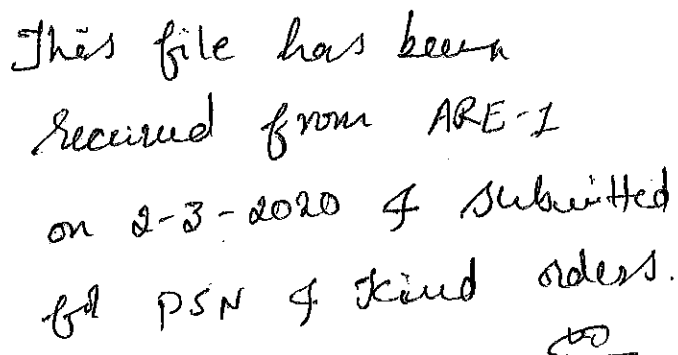 This file has been
received from ARE-1
on 2-3-2020 & submitted
for PSN & Kind orders.